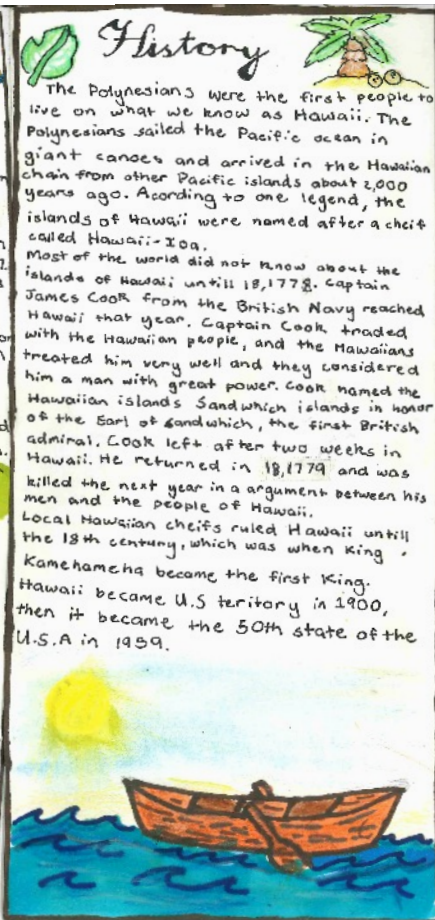 History
The Polynesians were the first people to
live on what we know as Hawaii. The
Polynesians sailed the Pacific ocean in
giant canoes and arrived in the Hawaiian
chain from other Pacific islands about 2,000
years ago. Acording to one legend, the
islands of Hawaii were named after a cheif
called Hawaii-Ioa.
Most of the world did not know about the
islands of Hawaii untill 18,1778. Captain
James Cook from the British Navy reached
Hawaii that year. Captain Cook traded
with the Hawaiian people, and the Hawaiians
treated him very well and they considered
him a man with great power. Cook named the
Hawaiian islands Sandwhich islands in honor
of the Earl of sandwhich, the first British
admiral. Cook left after two weeks in
Hawaii. He returned in 18,1779 and was
killed the next year in a argument between his
men and the people of Hawaii.
Local Hawaiian cheifs ruled Hawaii untill
the 18th century, which was when King
Kamehameha became the first King.
Hawaii became U.S teritory in 1900,
then it became the 50th state of the
U.S.A in 1959.